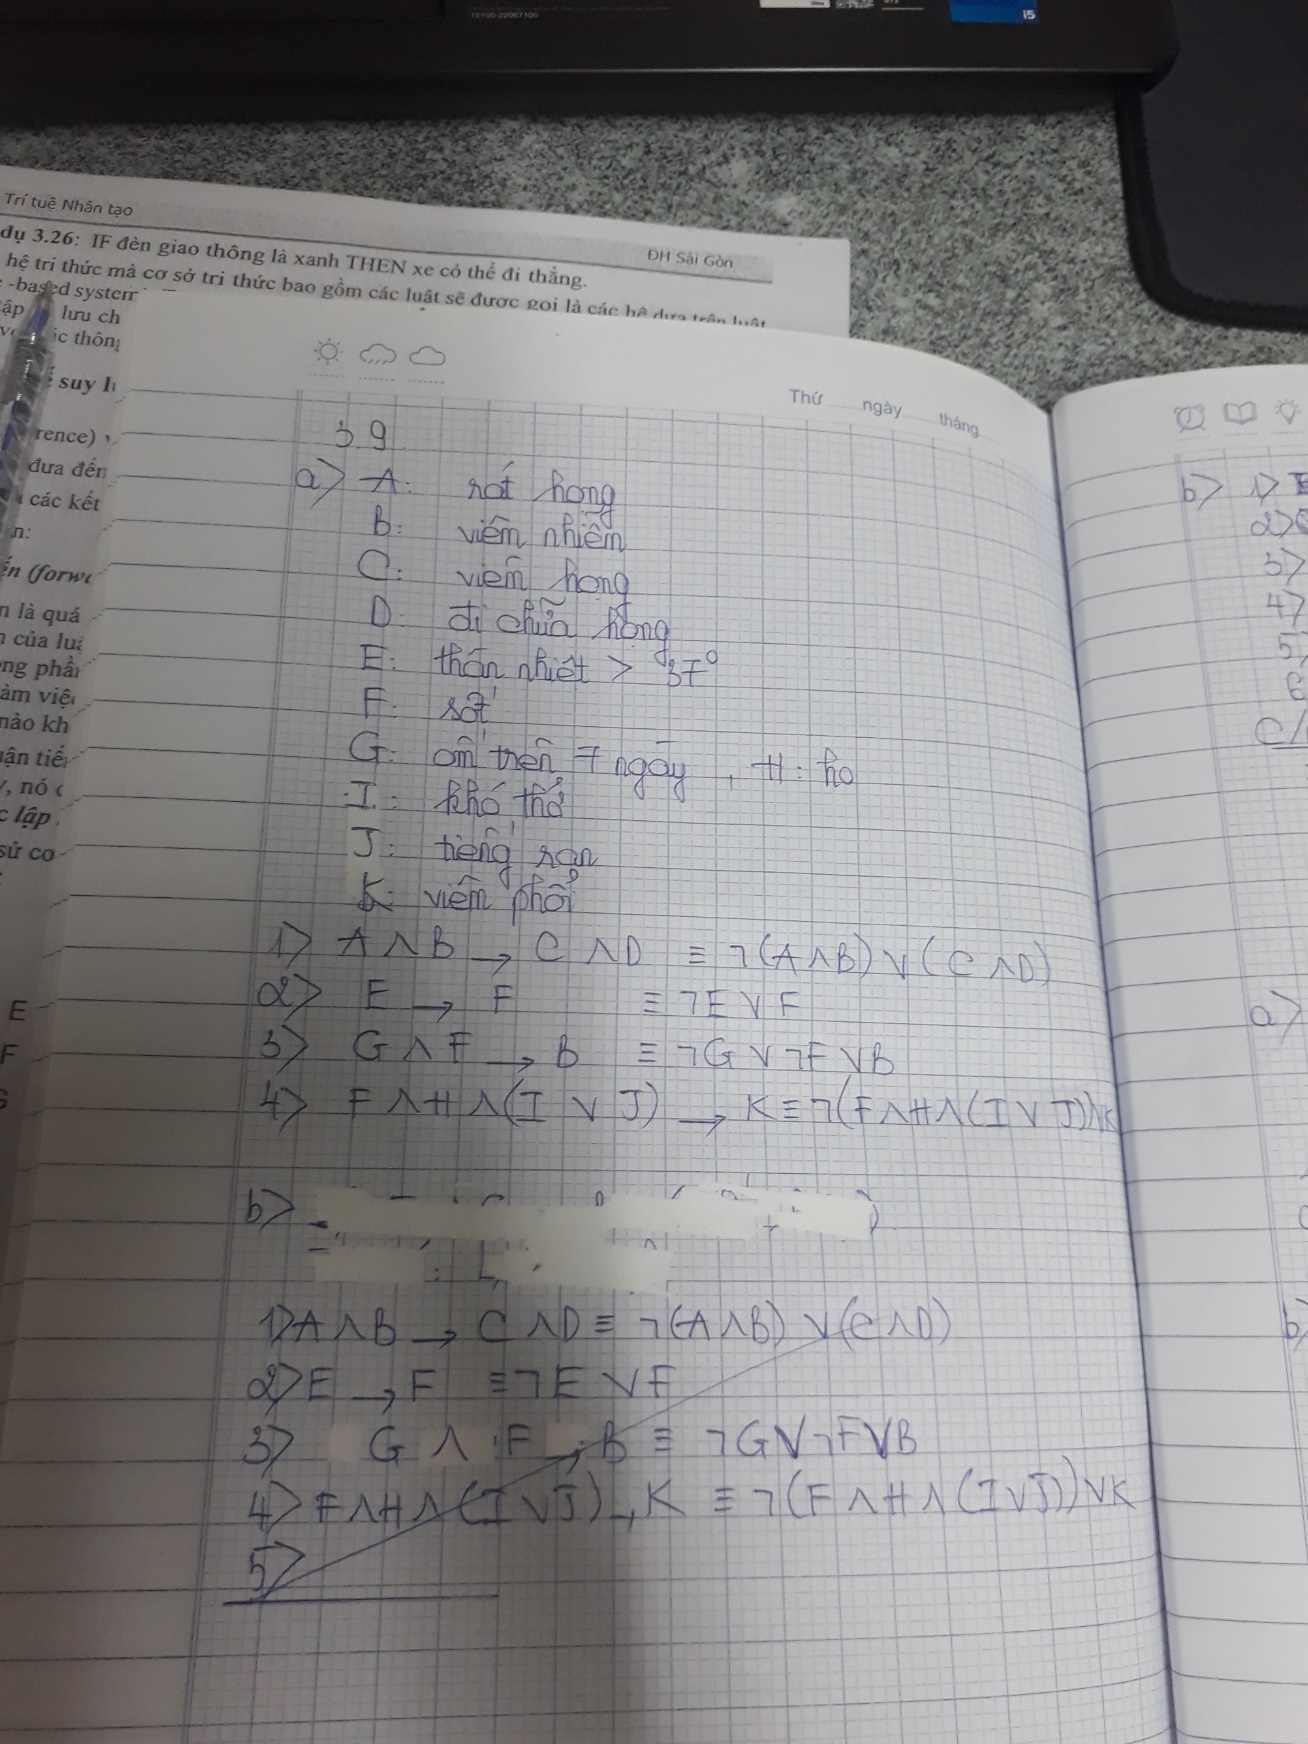 i5
Trí tuệ Nhân tạo
ĐH Sài Gòn
dụ 3.26: IF đèn giao thông là xanh THEN xe có thể đi thẳng.
hệ tri thức mà cơ sở tri thức bao gồm các luật sẽ được gọi là các hệ dựa trên luật
-based system
lưu ch
ic thông
suy l
rence)
đưa đến
các kết
n:
ến (forw
n là quá
n của luậ
ong phần
làm việc
nào kh
uận tiế
, nó
c lập
sử cơ
E
F
Thứ ngày tháng
39
a> A: rát họng
B: viêm nhiễm
C: viêm họng
D: đi chữa họng
E: thân nhiệt > 37°
F: sốt
G: ốm trên 7 ngày, H: ho
I: khó thở
J: tiếng ran
K: viêm phổi
1> A ∧ B → C ∧ D ≡ ¬(A ∧ B) ∨ (C ∧ D)
2> E → F ≡ ¬E ∨ F
3> G ∧ F → B ≡ ¬G ∨ ¬F ∨ B
4> F ∧ H ∧ (I ∨ J) → K ≡ ¬(F ∧ H ∧ (I ∨ J)) ∨ K
b>
1> A ∧ B → C ∧ D ≡ ¬(A ∧ B) ∨ (C ∧ D)
2> E → F ≡ ¬E ∨ F
3> G ∧ F → B ≡ ¬G ∨ ¬F ∨ B
4> F ∧ H ∧ (I ∨ J) → K ≡ ¬(F ∧ H ∧ (I ∨ J)) ∨ K
5>
b> 1>
2>
3>
4>
5>
6
c/
a>
b>